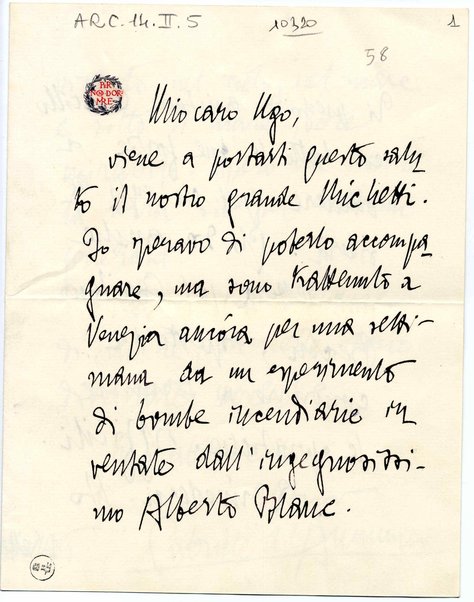 ARC.14.II.5 10320 1
58
PER
NON DOR
MIRE
Mio caro Ugo,
viene a portarti questo salu
to il nostro grande Michetti.
Io speravo di poterlo accompa
gnare, ma sono trattenuto a
Venezia ancóra per una setti-
mana da un esperimento
di bombe incendiarie in
ventate dall'ingegnosissi-
mo Alberto Blanc.